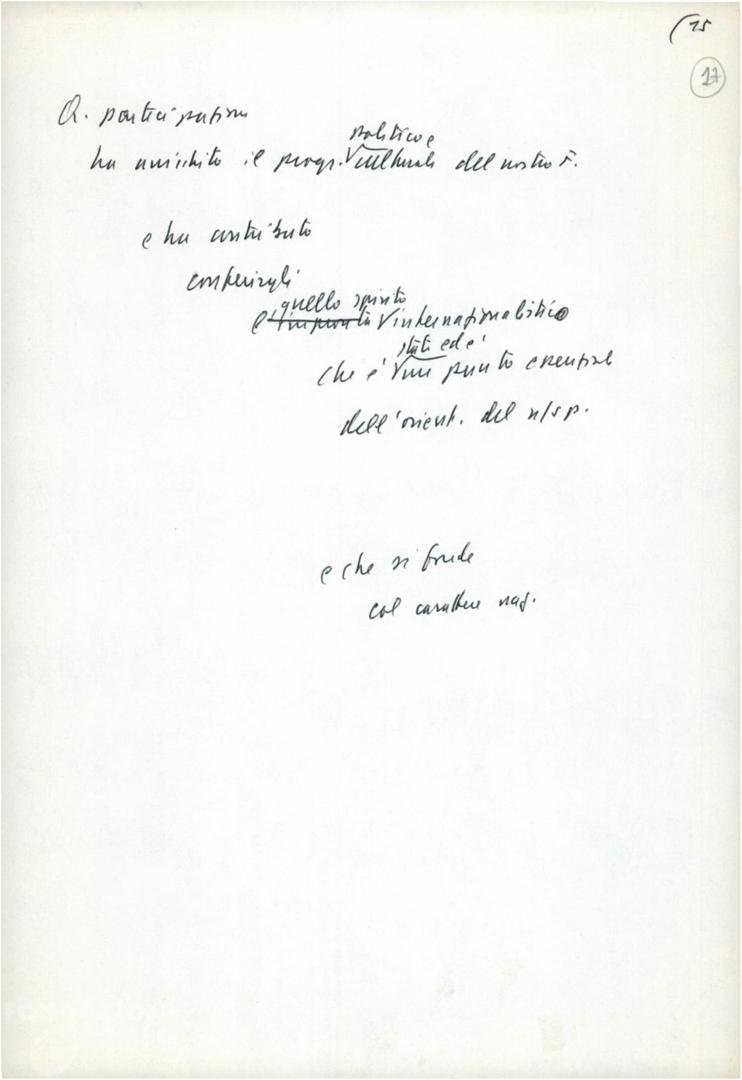 (15
17
Q. partecipazione
politico e
ha arricchito il progr. culturale del nostro F.
e ha contribuito
conferirgli
quello spirito
e l'impronta internazionalistico
stato ed è
che è un punto essenziale
dell'orient. del n/s p.
e che si fonde
col carattere naz.